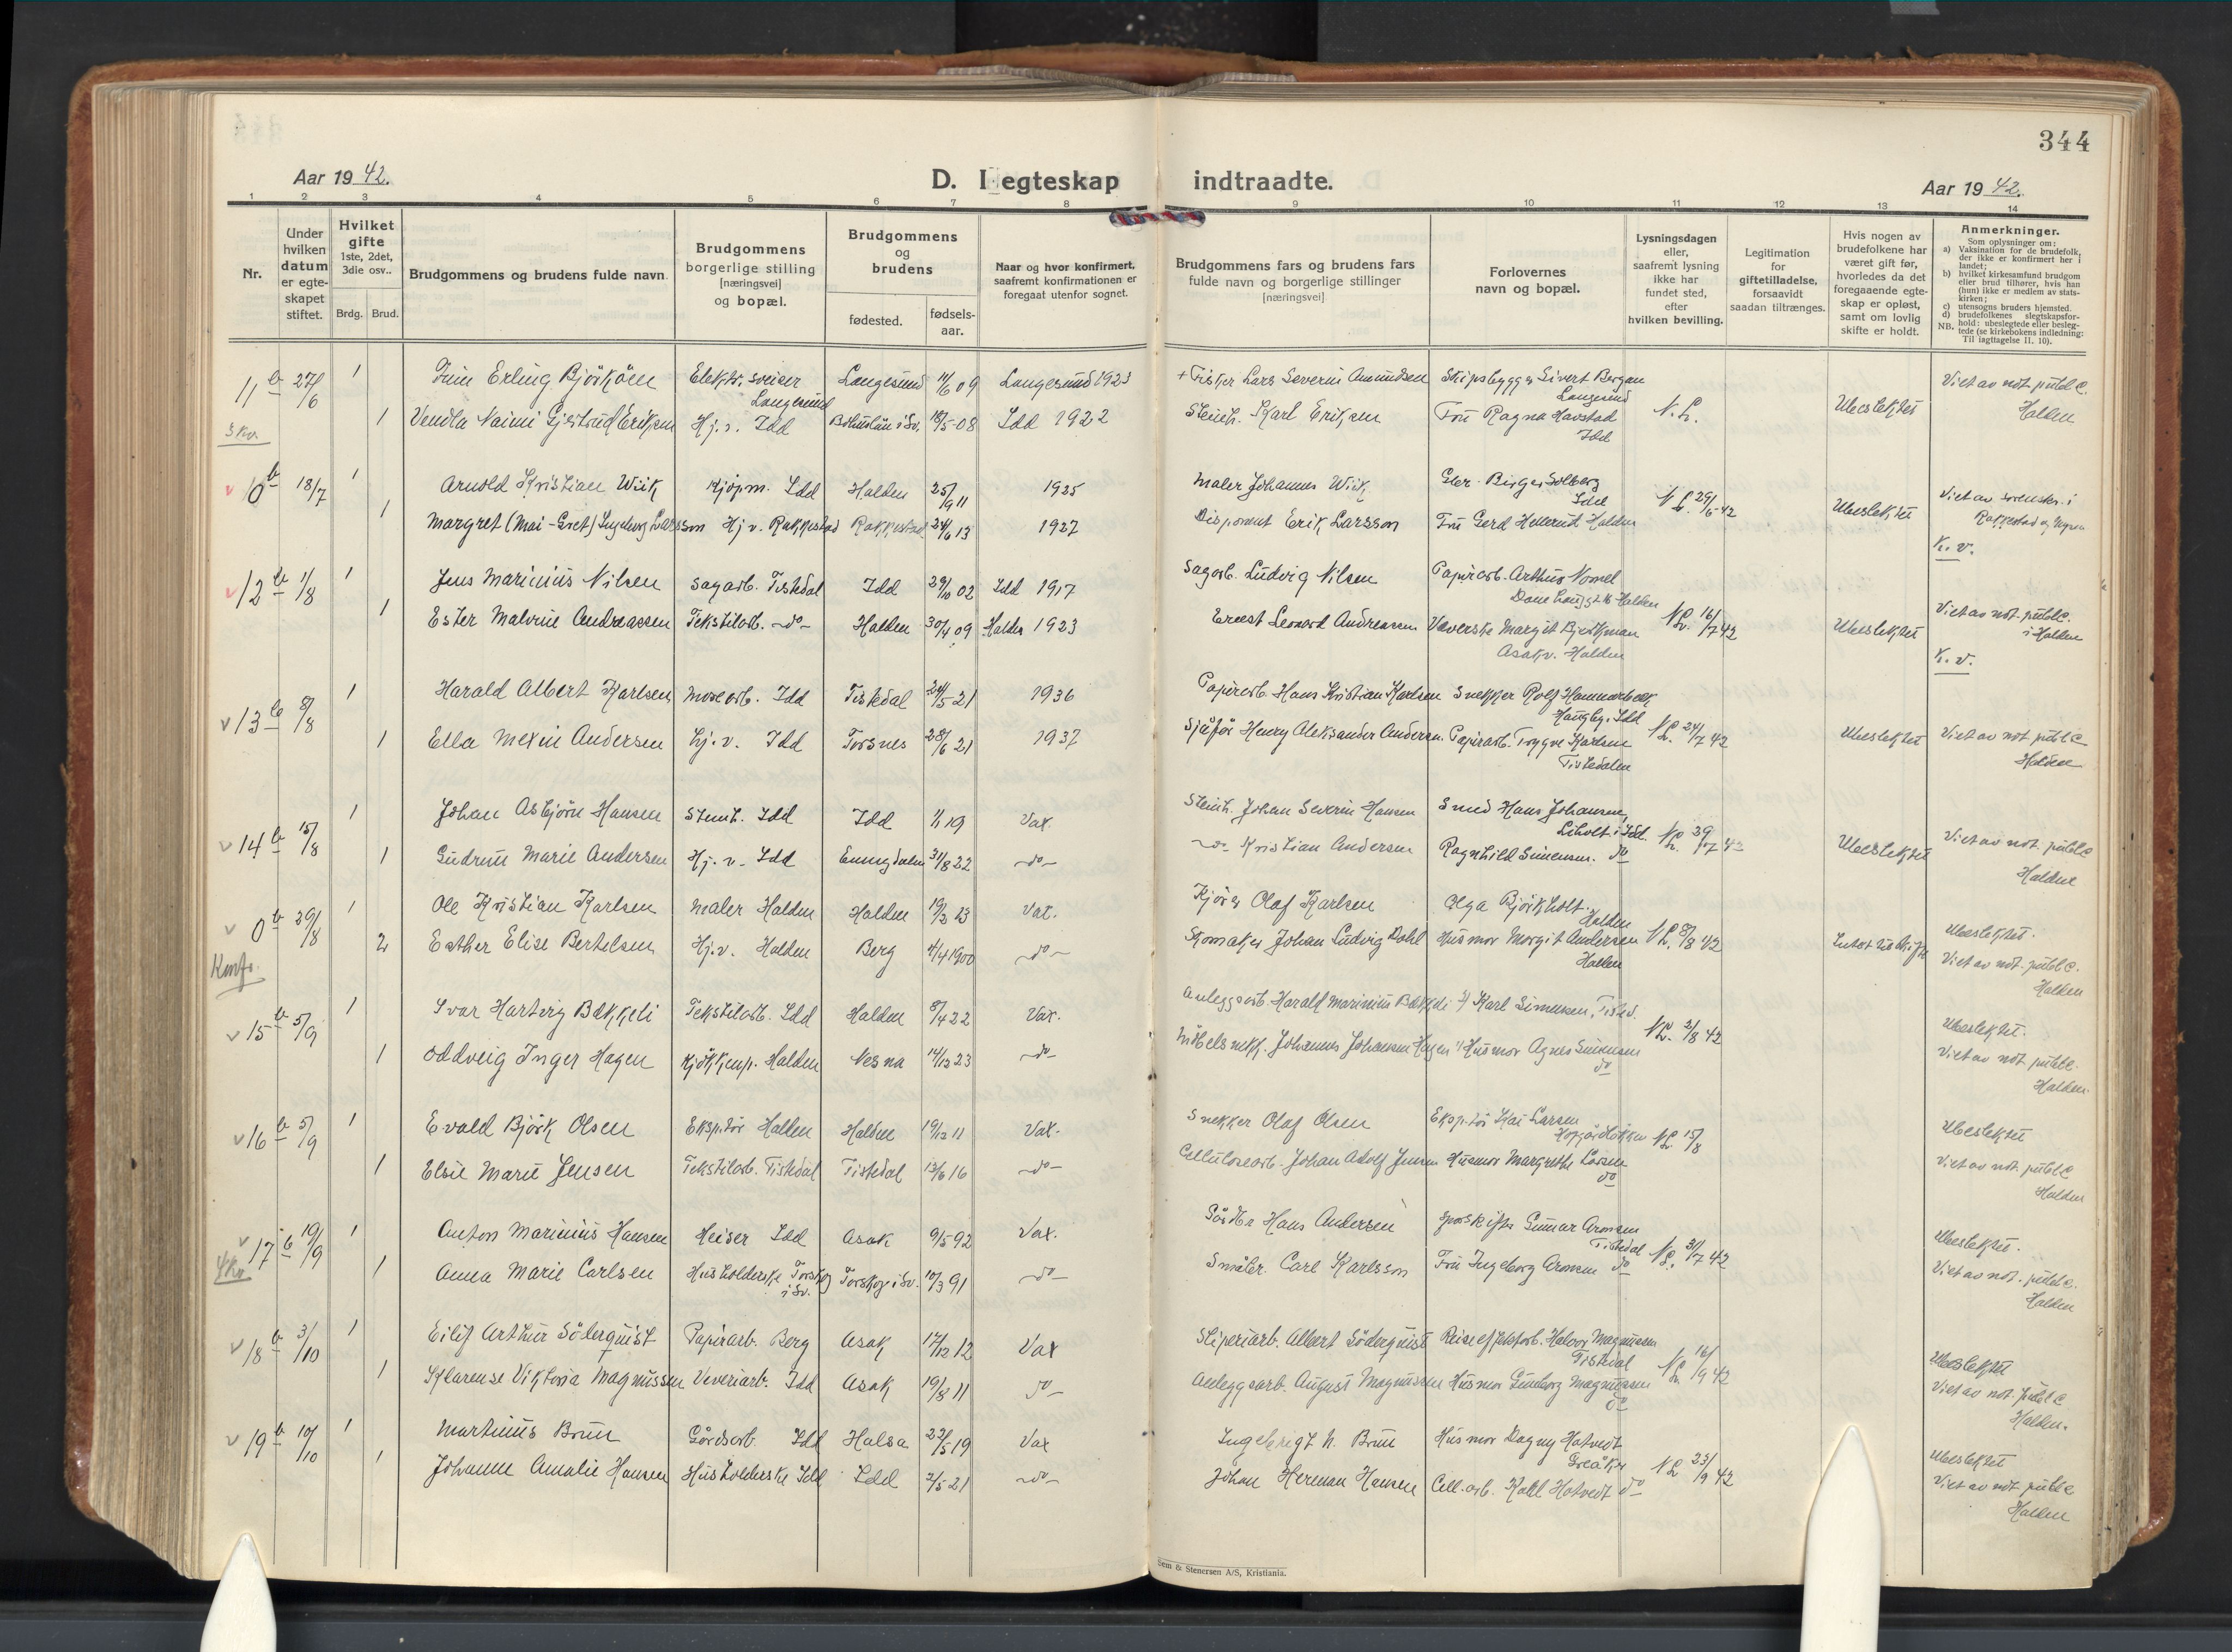 344
Aar 1942.
D. I egteskap indtraadte.
Aar 1942.
1 2 3 4 5 6 7 8 9 10 11 12 13 14
Nr.
Under hvilken datum er egte-skapet stiftet.
Hvilket gifte 1ste, 2det, 3die osv..
Brdg. Brud.
Brudgommens og brudens fulde navn.
Brudgommens borgerlige stilling [næringsvei] og bopæl.
Brudgommens og brudens
fødested.
fødsels-aar.
Naar og hvor konfirmert, saafremt konfirmationen er foregaat utenfor sognet.
Brudgommens fars og brudens fars fulde navn og borgerlige stillinger [næringsvei]
Forlovernes navn og bopæl.
Lysningsdagen eller, saafremt lysning ikke har fundet sted, efter hvilken bevilling.
Legitimation for giftetilladelse, forsaavidt saadan tiltrænges.
Hvis nogen av brudefolkene har været gift før, hvorledes da det foregaaende egte-skap er opløst, samt om lovlig skifte er holdt.
Anmerkninger.
Som oplysninger om:
a) Vaksination for de brudefolk, der ikke er konfirmert her i landet;
b) hvilket kirkesamfund brudgom eller brud tilhører, hvis han (hun) ikke er medlem av stats-kirken;
c) utensogns bruders hjemsted.
d) brudefolkenes slegtskapsfor-hold: ubeslegtede eller besleg-tede (se kirkebokens indledning:
NB. Til iagttagelse II. 10).
11 b 27/6 1 Erling Björkåen Elektr. sveiser Langesund Langesund 11/6 09 Langesund 1923 + Fisker Lars Severin Amundsen Skipsbygger Sivert Bergan Langesund Viet av not. publ.
1 Vendla Naimi Gjertrud Eriksen Hj. v. Idd Bohuslän i Sv. 18/5-08 Idd 1922 Steinh. Karl Eriksen Fru Ragna Havstad Idd N. L. Ubeslektet Halden
3 kr.
0 b 18/7 1 Arnold Kristian Wiik Kjöpm. Idd Halden 25/9 11 1925 Maler Johannes Wiik Birger Solberg Idd N. L. 29/6-42 Ubeslektet Viet av sorenskr. i Rakkestad
1 Margret (Mai-Gret) Ingeborg Larsson Hj. v. Rakkestad Rakkestad 24/6 13 1927 Disponent Erik Larsson Fru Gerd Hellerud Halden K. v.
12 b 1/8 1 Jens Marinius Nilsen Sagarb. Tistedal Idd 29/10 02 Idd 1917 Sagarb. Ludvig Nilsen Papirarb. Arthur Halden
1 Ester Malvine Andreassen Tekstilarb. -do- Halden 30/4 09 Halden 1923 Ernest Leonard Andreassen Væverske Margit Bjerkman Asakv. Halden N. L. 16/7 42 Ubeslektet Viet av not. publ. i Halden
K. v.
13 b 8/8 1 Harald Albert Karlsen Idd Tistedal 24/5-21 1936 Papirarb. Hans Kristian Karlsen Snekker Rolf Hammarbeck Haugby. Idd
1 Ella Mexin Andersen Hj. v. Idd Torsnes 28/6 21 1937 Sjåför Henry Aleksander Andersen Papirarb. Trygve Karlsen Tistedalen N. L. 24/7 42 Ubeslektet Viet av not. publ. Halden
14 b 15/8 1 Johan Asbjörn Hansen Steinh. Idd Idd 1/1 19 Vax. Steinh. Johan Severin Hansen Smed Hans Johansen, Liholt i Idd N. L. 29/7 42
1 Gudrun Marie Andersen Hj. v. Idd Enningdalen 31/8 22 -do- -do- Kristian Andersen Ragnhild Simensen. do Ubeslektet Viet av not. publ. Halden
0 b 29/8 1 Ole Kristian Karlsen Maler Halden Halden 19/2 23 Vax. Kjörer Olaf Karlsen Olga Björkholt. Halden
2 Esther Elise Bertelsen Hj. v. Halden Berg 4/4 1900 -do- Skomaker Johan Ludvig Dahl Husmor Margit Andersen Halden N. L. 8/8 42 Ubeslektet. Viet av not. publ. Halden
Konfr.
15 b 5/9 1 Ivar Hartvig Bækkeli Tekstilarb. Idd Halden 8/4 22 Vax. Anleggsarb. Harald Marinius Bækkeli Karl Simensen, Tisted.
1 Oddveig Inger Hagen Kjökkenp. Halden Nesna 14/12 23 -do- Möbelsnekk. Johannes Johansen Hagen Husmor Agnes Simensen do N. L. 2/8 42 Ubeslektet. Viet av not. publ. Halden.
16 b 5/9 1 Evald Björk Olsen Eksp.tör Halden Halden 19/12 11 Vax. Snekker Olaf Olsen Eksp.tör Kai Larsen N. L. 15/8 Ubeslektet
1 Elsie Marie Jensen Tekstilarb. Tistedal Tistedal 13/6 16 -do- Cellulosearb. Johan Adolf Jensen Husmor Margrethe Larsen do Viet av not. publ. Halden
17 b 19/9 1 Anton Marinius Hansen Heiser Idd Asak 9/5 92 Vax. Hans Andersen Sporskifter Gunnar Aronsen Tistedal N. L. 31/7 42 Ubeslektet.
4 kr. 1 Anna Marie Carlsen Husholderske Torskog i Sv. Torskog i Sv. 10/3 91 -do- Småbr. Carl Karlsson Fru Ingeborg Aronsen do Viet av not. publ. Halden
18 b 3/10 1 Eilif Arthur Söderquist Papirarb. Berg Asak 17/12 12 Vax Sliperiarb. Albert Söderquist Halvor Magnussen Tistedal N. L. 16/9 42 Ubeslektet
1 Klarense Viktoria Magnussen Veveriarb. Idd Asak 19/8 11 do- Anleggsarb. August Magnussen Husmor Gunborg Magnussen do Viet av not. publ. Halden.
19 b 10/10 1 Martinius Brun Gårdsarb. Idd Halsa 22/5 19 Vax Ingebrigt N. Brun Husmor Dagny Hatvedt Greåker N. L. 23/9 42 Ubeslektet
1 Johanne Amalie Hansen Husholderske Idd Idd 2/5-21 -do- Johan Herman Hansen Cell. arb. Hatvedt do Viet av not. publ. Halden
Sem & Stenersen A/S, Kristiania.